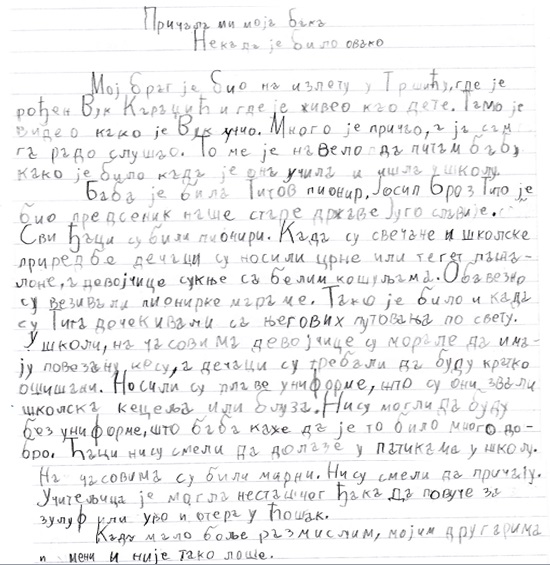 Причала ми моја бака
Некада је било овако
Мој брат је био на излету у Тршићу, где је
рођен Вук Караџић и где је живео као дете. Тамо је
видео како је Вук учио. Много је причао, а ја сам
га радо слушао. То ме је навело да питам бабу
како је било када је она учила и ишла у школу.
Баба је била Титов пионир, Јосип Броз Тито је
био предсеник наше старе државе Југославије.
Сви ђаци су били пионири. Када су свечане и школске
приредбе дечаци су носили црне или тегет панта-
лоне, а девојчице сукње са белим кошуљама. Обавезно
су везивали пионирке мараме. Тако је било и када
су Тита дочекивали са његових путовања по свету.
У школи, на часовима девојчице су морале да има-
ју повезану косу, а дечаци су требали да буду кратко
ошишани. Носили су плаве униформе, што су они звали
школска кецеља или блуза. Нису могли да буду
без униформе, што баба каже да је то било много до-
бро. Ђаци нису смели да долазе у патикама у школу.
На часовима су били мирни. Нису смели да причају.
Учитељица је могла несташног ђака да повуче за
зулуф или уво и отера у ћошак.
Када мало боље размислим, мојим другарима
и мени и није тако лоше.